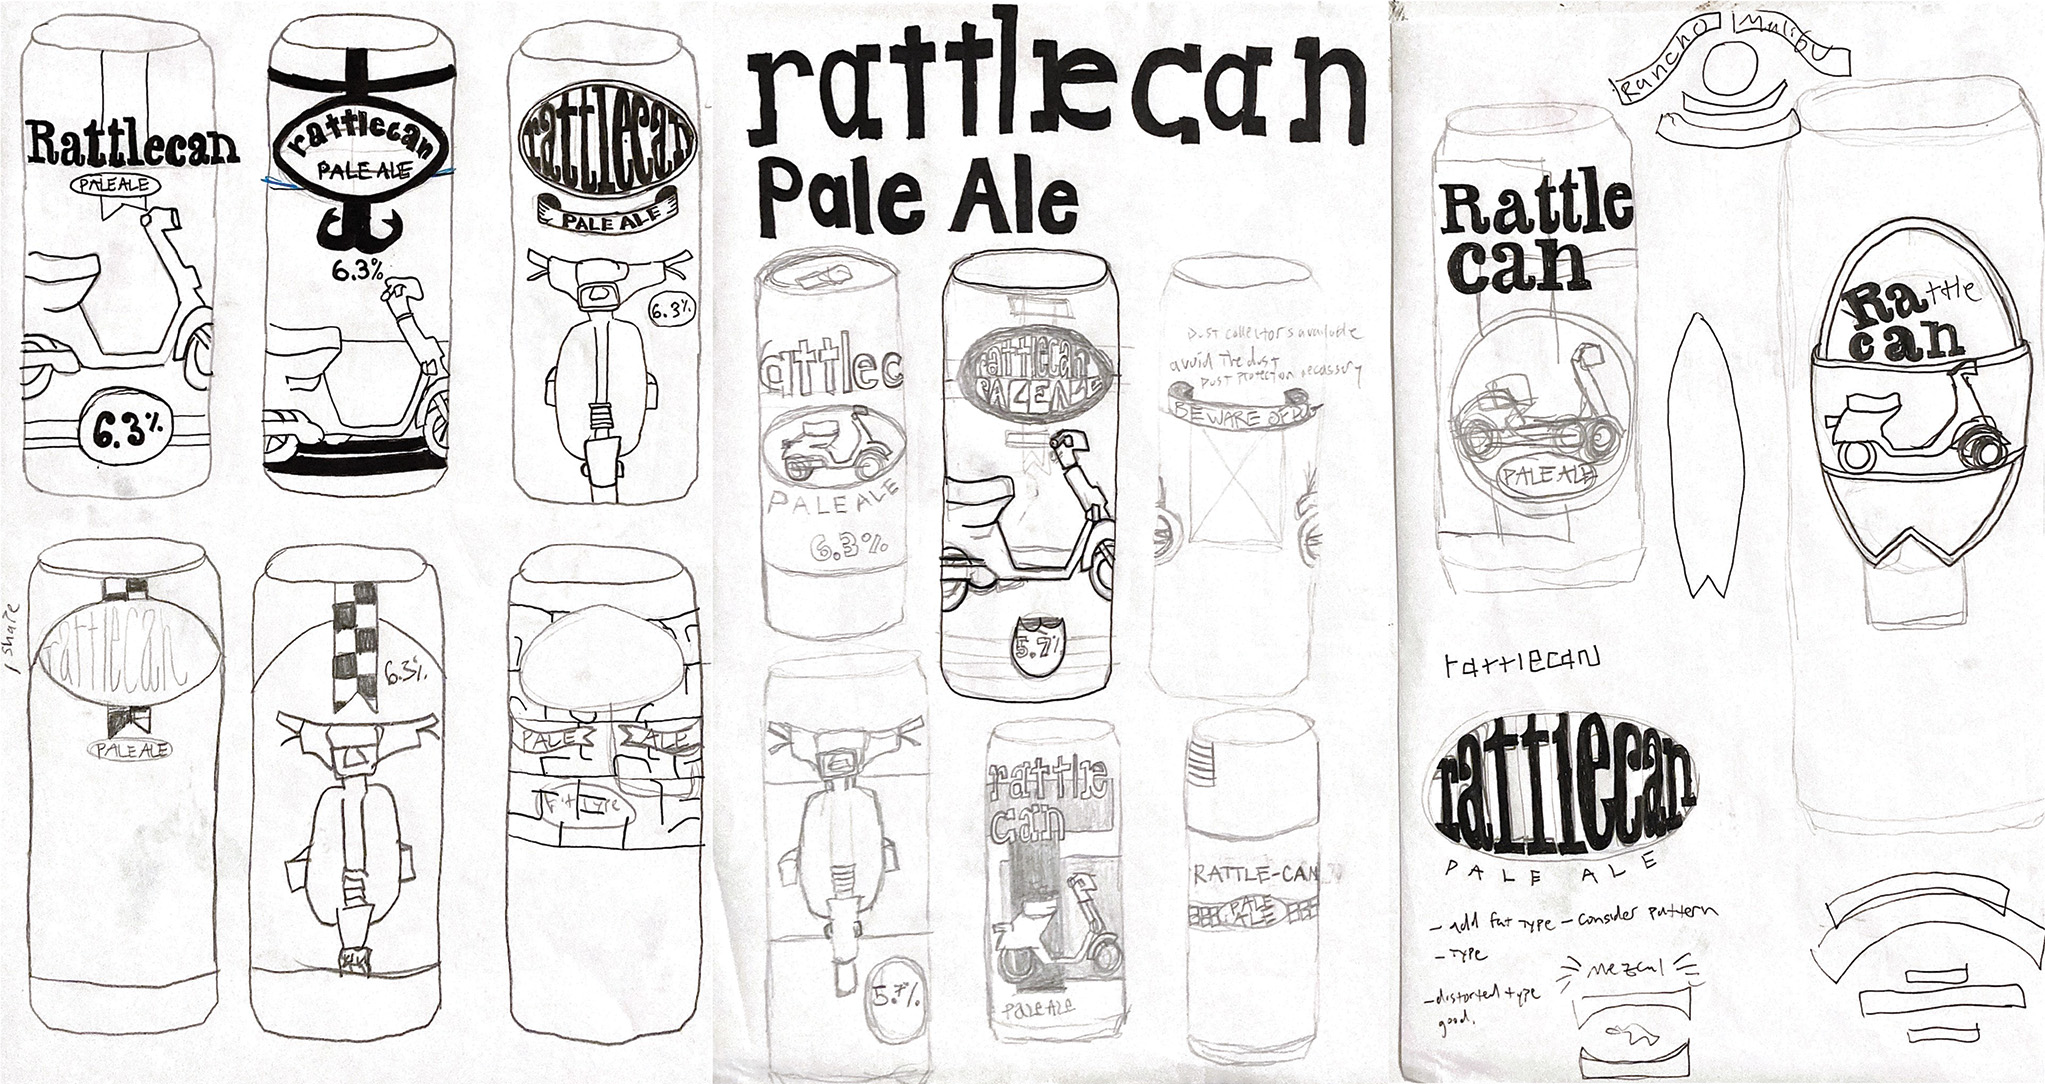 Rattlecan
PALE ALE
6.3%
rattlecan
PALE ALE
6.3%
rattlecan
PALE ALE
6.3%
rattlecan
PALE ALE
6.3%
PALE
ALE
Fat Type
rattlecan
Pale Ale
attlec
PALE ALE
6.3%
rattlecan
PALE ALE
5.7%
Dust collectors available
avoid the dust
Dust protection necessary
BEWARE OF
5.7%
rattle
can
Pale Ale
RATTLE-CAN
PALE
ALE
Rancho Malibu
Rattle
can
PALE ALE
Rattle
can
rattlecan
rattlecan
PALE ALE
- add fat type - consider pattern
- type
- distorted type
good.
Mezcal